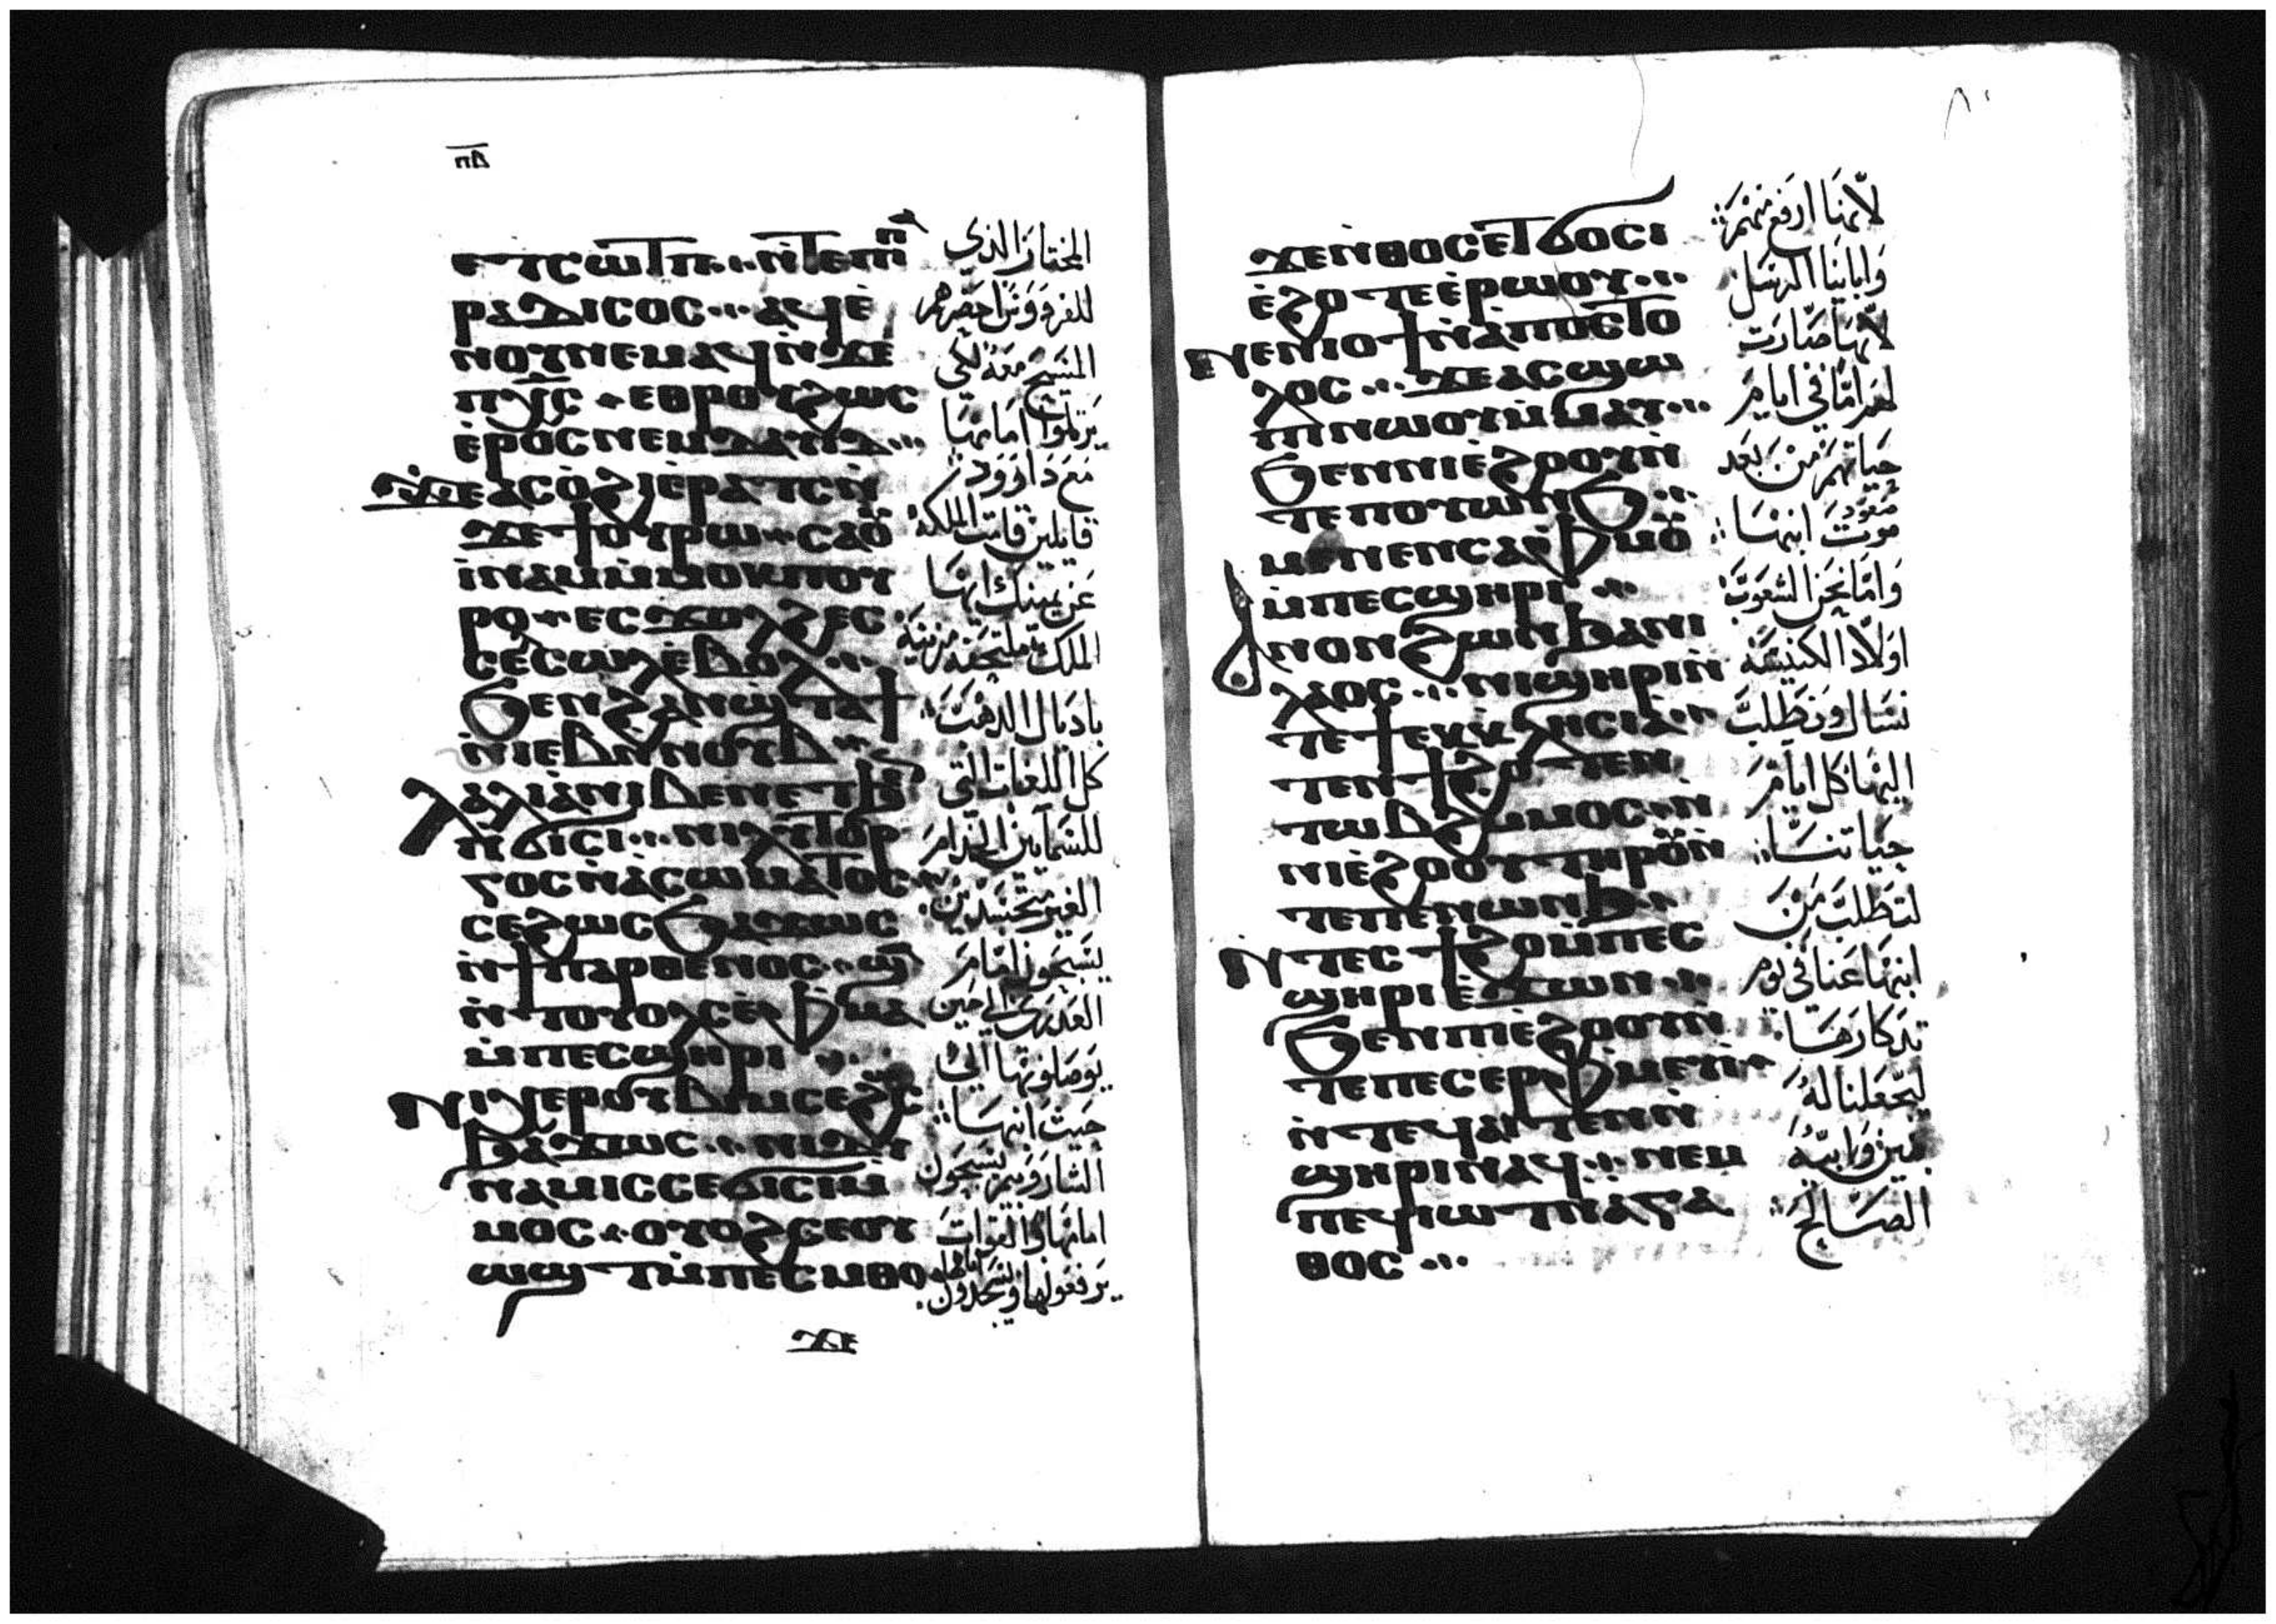 ⲡⲇ
ⲉⲧⲥⲱⲧⲡ ⲛ̀ⲧⲉⲡⲓⲡⲁ
ⲣⲁⲇⲓⲥⲟⲥ ⲁϥⲉ̀
ⲛⲟⲩⲛⲉⲙⲁϥ ⲛ̀ϫⲉ
ⲡⲭ̅ⲥ̅ ⲉⲑⲣⲟⲩϩⲱⲥ
ⲉ̀ⲣⲟⲥ ⲛⲉⲙ ⲇⲁⲩⲓⲇ
ϫⲉ ⲁⲥⲟ̀ϩⲓ ⲉ̀ⲣⲁⲧⲥ ⲛ̀
ϫⲉ ϯⲟⲩⲣⲱ ⲥⲁⲟⲩ
ⲓ̀ⲛⲁⲙ ⲙ̀ⲙⲟⲕ ⲡⲟⲩ
ⲣⲟ ⲉⲥϫⲟⲗϩ ⲉⲥ
ⲥⲉⲥⲱⲗ ⲉ̀ⲃⲟⲗ
ϧⲉⲛ ϩⲁⲛϣⲧⲁϯ
ⲛ̀ⲓⲉⲃ ⲛ̀ⲛⲟⲩⲃ
ⲗⲁⲗⲓⲁ ⲛⲓⲃⲉⲛ ⲉⲧϧⲉⲛ
ⲛ̀ϭⲓⲥⲓ ⲛⲓⲗⲓⲧⲟⲩⲣ
ⲅⲟⲥ ⲛ̀ⲁⲥⲱⲙⲁⲧⲟⲥ
ⲥⲉϩⲱⲥ ϧⲁϫⲱⲥ
ⲛ̀ϯⲡⲁⲣⲑⲉⲛⲟⲥ ϣⲁ
ⲛ̀ⲧⲟⲩⲟⲗⲥ ⲉ̀ⲫⲙⲁ
ⲙ̀ⲡⲉⲥϣⲏⲣⲓ
ⲛⲓⲭⲉⲣⲟⲩⲃⲓⲙ ⲥⲉϩⲥ
ϧⲁϫⲱⲥ ⲛⲓⲇⲩ
ⲛⲁⲙⲓⲥ ⲥⲉϭⲓⲥⲓ ⲙ̀
ⲙⲟⲥ ⲟⲩⲟϩ ⲥⲉⲟⲩ
ⲱϣⲧ ⲙ̀ⲡⲉⲥⲙ̀ⲑⲟ
ϫⲉ
المختار الذي
للفردوس احضرهم
المسيح معه لكي
يرتلوا امامها
مع داوود
قايلين قامت الملكه
عن يمينك ايها
الملك ملتحفه مزينه
باديال الدهب
كل اللغات التي
للسمايين الخدام
الغير متجسدين
يسبحون امام
العدرى الي حين
يوصلونها الي
حيث ابنها
الشاروبيم يسبحون
امامها والقوات
يرفعونها ويسجدون امامها
٨٠
ϫⲉ ⲛ̀ⲑⲟⲥ ⲉⲧϭⲟⲥⲓ
ⲉ̀ϩⲟⲧⲉ ⲉ̀ⲣⲱⲟⲩ
ⲛⲉⲛⲓⲟϯ ⲛ̀ⲁⲡⲟⲥⲧⲟ
ⲗⲟⲥ ϫⲉ ⲁⲥϣⲱ
ⲡⲓ ⲛⲱⲟⲩ ⲙ̀ⲙⲁⲩ
ϧⲉⲛ ⲛⲓⲉ̀ϩⲟⲟⲩ ⲛ̀
ⲧⲉ ⲡⲟⲩⲱⲛϧ
ⲙⲉⲛⲉⲛⲥⲁ ⲫⲙⲟⲩ
ⲙ̀ⲡⲉⲥϣⲏⲣⲓ
ⲁⲛⲟⲛ ϩⲱⲛ ϧⲁ ⲛⲓ
ⲗⲁⲟⲥ ⲛⲓϣⲏⲣⲓ ⲛ̀
ⲧⲉ ϯⲉⲕⲕⲗⲏⲥⲓⲁ
ⲧⲉⲛϯϩⲟ ⲧⲉⲛ
ⲧⲱⲃϩ ⲙ̀ⲙⲟⲥ ⲛ̀
ⲛⲓⲉ̀ϩⲟⲟⲩ ⲧⲏⲣⲟⲩ ⲛ̀
ⲧⲉ ⲡⲉⲛⲱⲛϧ
ⲛ̀ⲧⲉⲥϯϩⲟ ⲙ̀ⲡⲉⲥ
ϣⲏⲣⲓ ⲉ̀ϫⲱⲛ
ϧⲉⲛ ⲡⲓⲉ̀ϩⲟⲟⲩ ⲛ̀
ⲧⲉ ⲡⲉⲥⲉⲣⲫⲙⲉⲩⲓ̀
ⲛ̀ⲧⲉϥⲁⲓⲧⲉⲛ ⲛ̀
ϣⲏⲣⲓ ⲛⲁϥ ⲛⲉⲙ
ⲡⲉϥⲓⲱⲧ ⲛ̀ⲁⲅⲁ
ⲑⲟⲥ
لانها ارفع منهم
وابايْنا الرسل
لانها صارت
لهم اما في ايام
حياتهم من بعد
صعود موت ابنها
واما نحن الشعوب
اولاد الكنيسه
نسال ونطلب
اليها كل ايام
حياتنا
لتطلب من
ابنها عنا في يوم
تدكارها
ليجعلنا له
بنين وابيه
الصالح